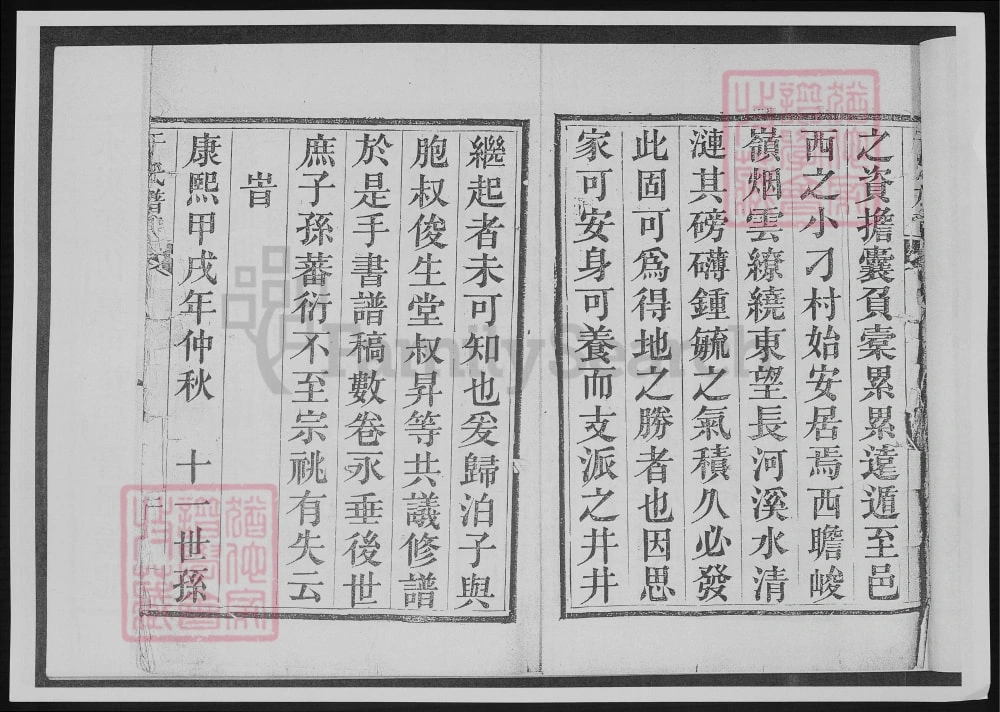 之資擔囊負橐累累遠遁至邑
西之小刁村始安居焉西瞻峻
嶺烟雲繚繞東望長河溪水清
漣其磅礴鍾毓之氣積久必發
此固可為得地之勝者也因思
家可安身可養而支派之井井
繼起者未可知也爰歸泊子與
胞叔俊生堂叔昇等共議修譜
於是手書譜稿數卷永垂後世
庶子孫蕃衍不至宗祧有失云
旹
康熙甲戌年仲秋 十一世孫
氏譜
FamilySearch